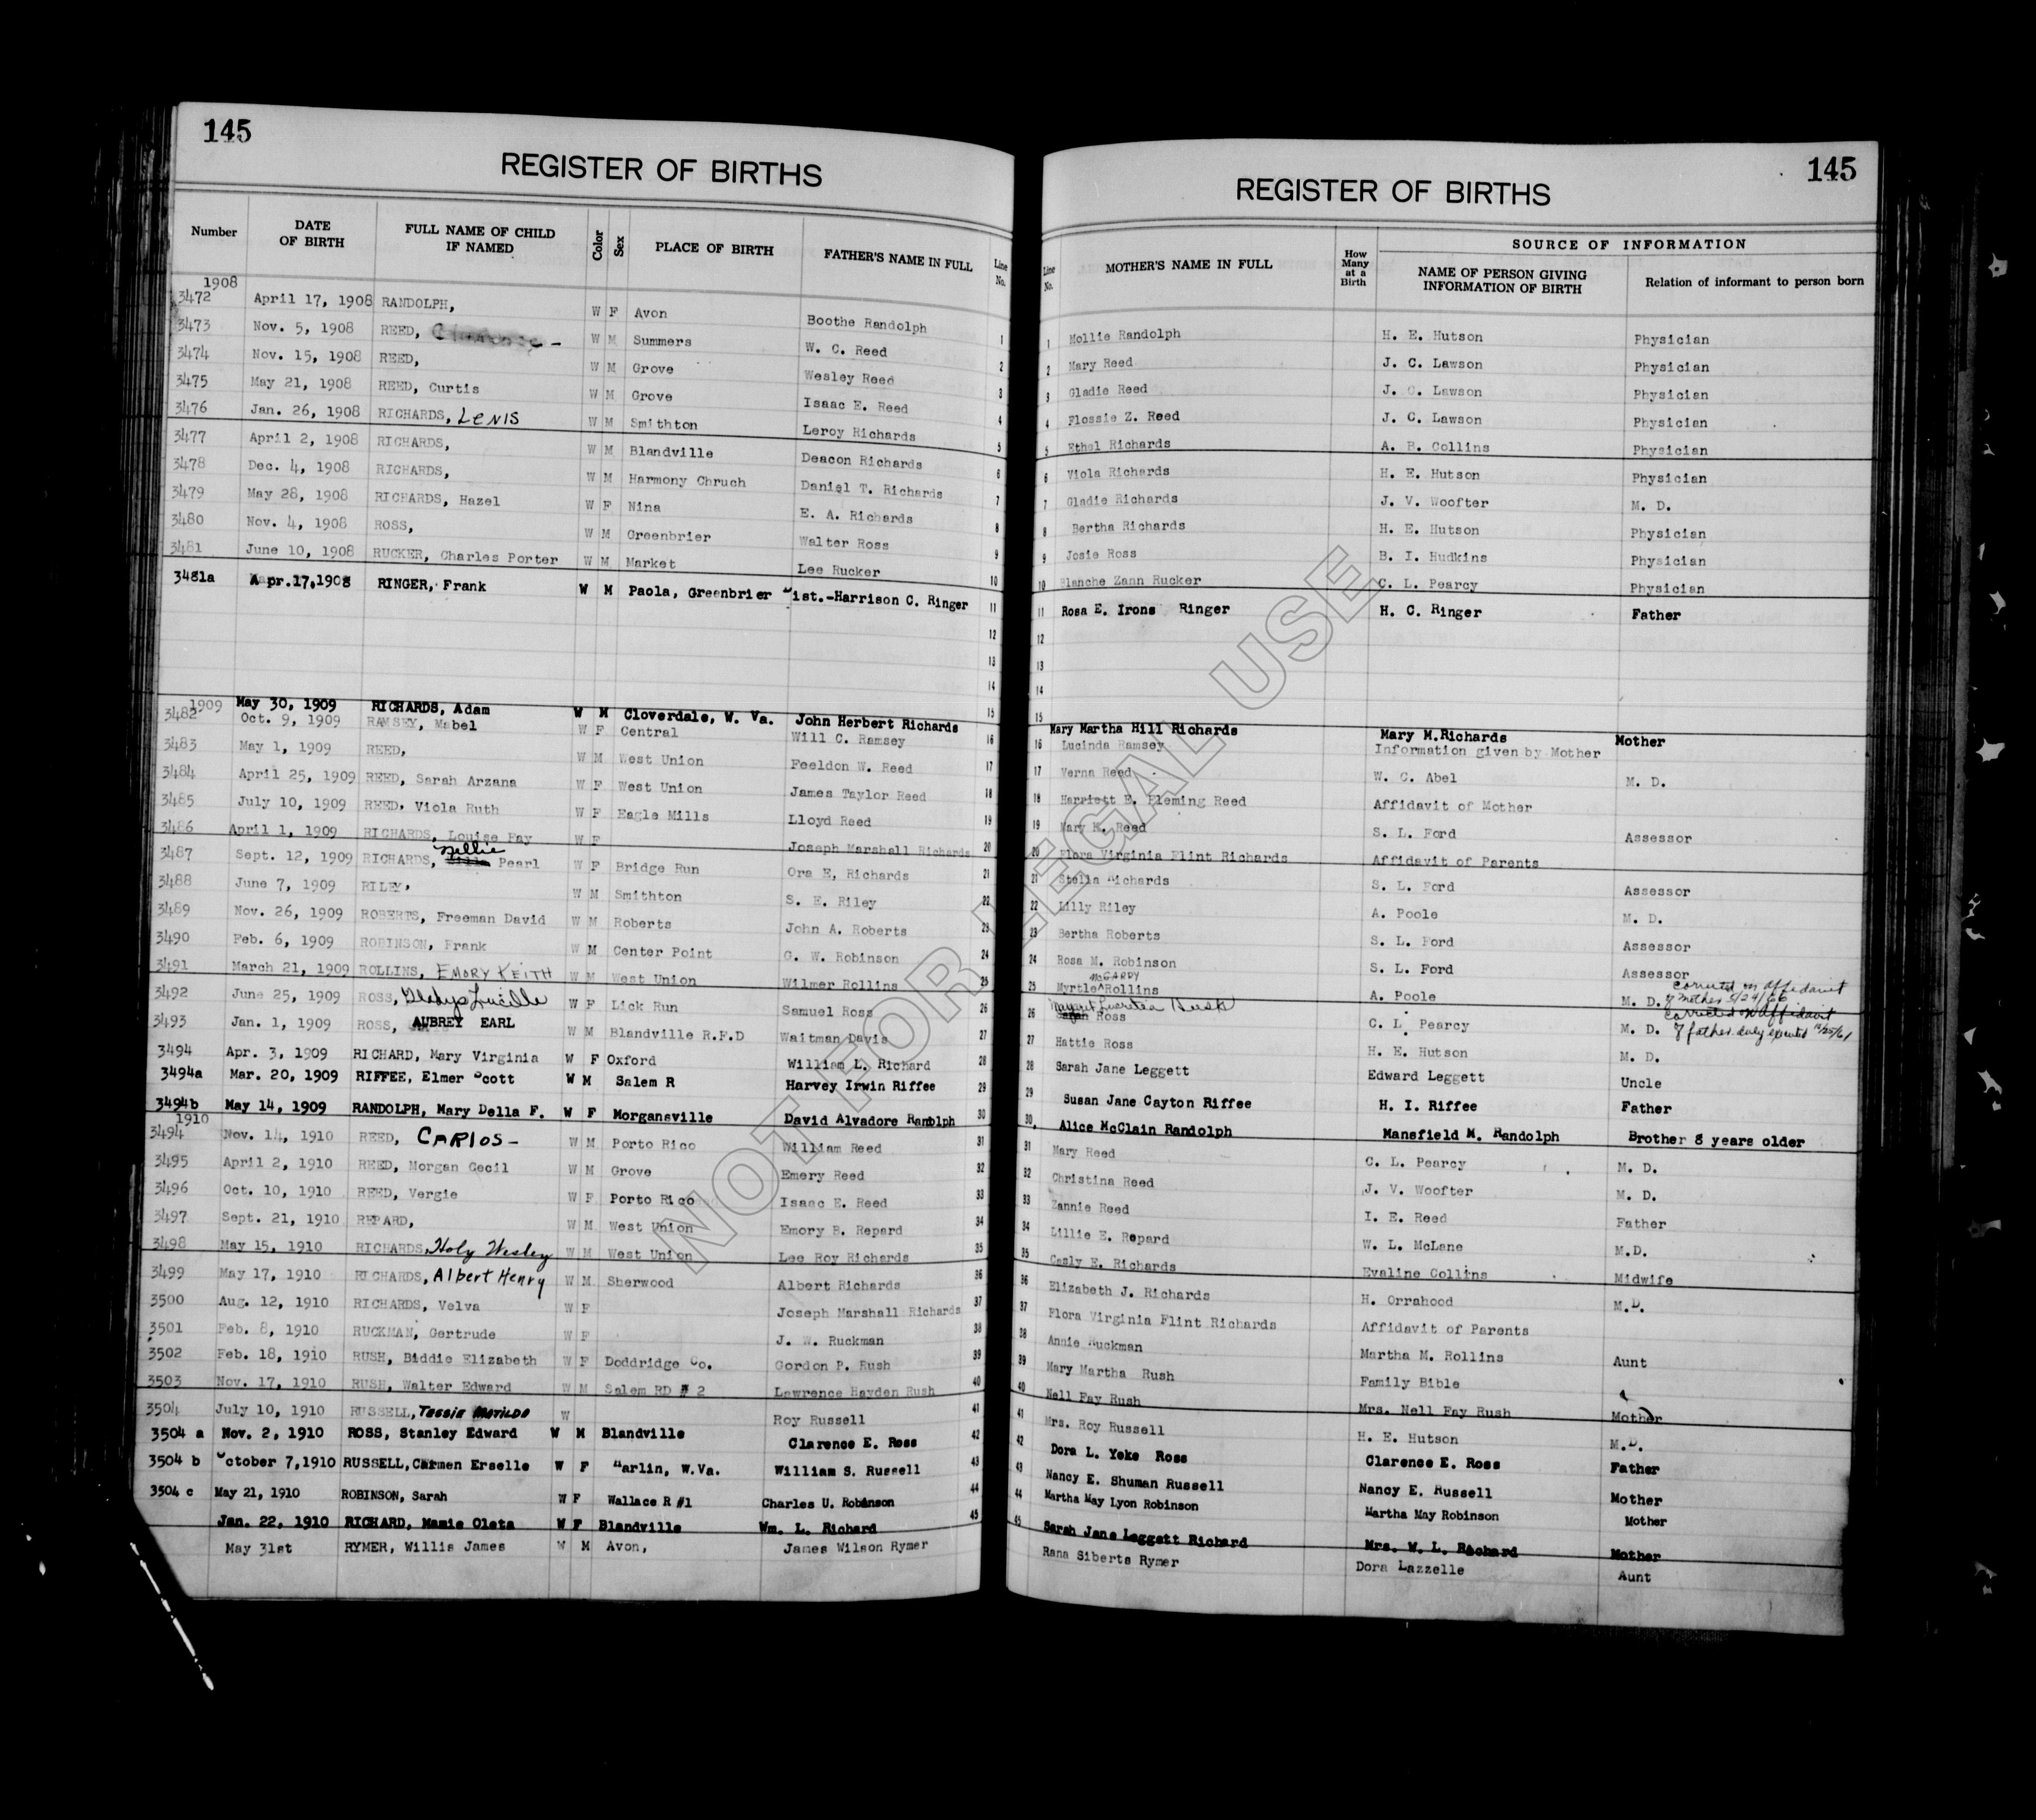 145
REGISTER OF BIRTHS
Number DATE OF BIRTH FULL NAME OF CHILD IF NAMED Color Sex PLACE OF BIRTH FATHER'S NAME IN FULL Line No.
1908
3472 April 17, 1908 RANDOLPH, W F Avon Boothe Randolph 1
3473 Nov. 5, 1908 REED, W M Summers W. C. Reed 2
3474 Nov. 15, 1908 REED, W M Grove Wesley Reed 3
3475 May 21, 1908 REED, Curtis W M Grove Isaac E. Reed 4
3476 Jan. 26, 1908 RICHARDS, LENIS W M Smithton Leroy Richards 5
3477 April 2, 1908 RICHARDS, W M Blandville Deacon Richards 6
3478 Dec. 4, 1908 RICHARDS, W M Harmony Chruch Daniel T. Richards 7
3479 May 28, 1908 RICHARDS, Hazel W F Nina E. A. Richards 8
3480 Nov. 4, 1908 ROSS, W M Greenbrier Walter Ross 9
3481 June 10, 1908 RUCKER, Charles Porter W M Market Lee Rucker 10
3481a Apr.17,1908 RINGER, Frank W M Paola, Greenbrier Dist.-Harrison C. Ringer 11
12
13
14
1909 May 30, 1909 RICHARDS, Adam W M Cloverdale, W. Va. John Herbert Richards 15
3482 Oct. 9, 1909 RAMSEY, Mabel W F Central Will C. Ramsey 16
3483 May 1, 1909 REED, W M West Union Feeldon W. Reed 17
3484 April 25, 1909 REED, Sarah Arzana W F West Union James Taylor Reed 18
3485 July 10, 1909 REED, Viola Ruth W F Eagle Mills Lloyd Reed 19
3486 April 1, 1909 RICHARDS, Louise Fay W F Joseph Marshall Richards 20
3487 Sept. 12, 1909 RICHARDS, Nellie Pearl W F Bridge Run Ora E, Richards 21
3488 June 7, 1909 RILEY, W M Smithton S. E. Riley 22
3489 Nov. 26, 1909 ROBERTS, Freeman David W M Roberts John A. Roberts 23
3490 Feb. 6, 1909 ROBINSON, Frank W M Center Point G. W. Robinson 24
3491 March 21, 1909 ROLLINS, EMORY KEITH W M West Union Wilmer Rollins 25
3492 June 25, 1909 ROSS, Gladys Lucille W F Lick Run Samuel Ross 26
3493 Jan. 1, 1909 ROSS, AUBREY EARL W M Blandville R.F.D Waitman Davis 27
3494 Apr. 3, 1909 RICHARD, Mary Virginia W F Oxford William L. Richard 28
3494a Mar. 20, 1909 RIFFEE, Elmer Scott W M Salem R Harvey Irwin Riffee 29
3494b May 14, 1909 RANDOLPH, Mary Della F. W F Morgansville David Alvadore Randolph 30
1910
3494 Nov. 14, 1910 REED, CARlOS- W M Porto Rico William Reed 31
3495 April 2, 1910 REED, Morgan Cecil W M Grove Emery Reed 32
3496 Oct. 10, 1910 REED, Vergie W F Porto Rico Isaac E. Reed 33
3497 Sept. 21, 1910 REPARD, W M West Union Emory B. Repard 34
3498 May 15, 1910 RICHARDS, Holy Wesley W M West Union Lee Roy Richards 35
3499 May 17, 1910 RICHARDS, Albert Henry W M Sherwood Albert Richards 36
3500 Aug. 12, 1910 RICHARDS, Velva W F Joseph Marshall Richards 37
3501 Feb. 8, 1910 RUCKMAN, Gertrude W F J. W. Ruckman 38
3502 Feb. 18, 1910 RUSH, Biddie Elizabeth W F Doddridge Co. Gordon P. Rush 39
3503 Nov. 17, 1910 RUSH, Walter Edward W M Salem RD # 2 Lawrence Hayden Rush 40
3504 July 10, 1910 RUSSELL, Tessie MATILDA W Roy Russell 41
3504 a Nov. 2, 1910 ROSS, Stanley Edward W M Blandville Clarence E. Ross 42
3504 b October 7,1910 RUSSELL, Carmen Erselle W F Harlin, W.Va. William S. Russell 43
3504 c May 21, 1910 ROBINSON, Sarah W F Wallace R #1 Charles U. Robinson 44
Jan. 22, 1910 RICHARD, Mamie Oleta W F Blandville Wm. L. Richard 45
May 31st RYMER, Willis James W M Avon, James Wilson Rymer
145
REGISTER OF BIRTHS
Line No. MOTHER'S NAME IN FULL How Many at a Birth SOURCE OF INFORMATION
NAME OF PERSON GIVING INFORMATION OF BIRTH Relation of informant to person born
1 Mollie Randolph H. E. Hutson Physician
2 Mary Reed J. C. Lawson Physician
3 Gladie Reed J. C. Lawson Physician
4 Flossie Z. Reed J. C. Lawson Physician
5 Ethel Richards A. B. Collins Physician
6 Viola Richards H. E. Hutson Physician
7 Gladie Richards J. V. Woofter M. D.
8 Bertha Richards H. E. Hutson Physician
9 Josie Ross B. I. Hudkins Physician
10 Blanche Zann Rucker C. L. Pearcy Physician
11 Rosa E. Irons Ringer H. C. Ringer Father
12
13
14
15 Mary Martha Hill Richards Mary M.Richards Mother
16 Lucinda Ramsey Information given by Mother
17 Verna Reed W. C. Abel M. D.
18 Harriett E. Fleming Reed Affidavit of Mother
19 Mary K. Reed S. L. Ford Assessor
20 Flora Virginia Flint Richards Affidavit of Parents
21 Stella Richards S. L. Ford Assessor
22 Lilly Riley A. Poole M. D.
23 Bertha Roberts S. L. Ford Assessor
24 Rosa M. Robinson S. L. Ford Assessor
25 Myrtle McCARDY Rollins A. Poole M. D. corrected on affidavit of Mother 5/24/66
26 Margaret Lucretia Husk Ross C. L. Pearcy M. D. Corrected on affidavit of father duly executed 12/25/61
27 Hattie Ross H. E. Hutson M. D.
28 Sarah Jane Leggett Edward Leggett Uncle
29 Susan Jane Cayton Riffee H. I. Riffee Father
30 Alice McClain Randolph Mansfield M. Randolph Brother 8 years older
31 Mary Reed C. L. Pearcy M. D.
32 Christina Reed J. V. Woofter M. D.
33 Zannie Reed I. E. Reed Father
34 Lillie E. Repard W. L. McLane M.D.
35 Casly E. Richards Evaline Collins Midwife
36 Elizabeth J. Richards H. Orrahood M.D.
37 Flora Virginia Flint Richards Affidavit of Parents
38 Annie Ruckman Martha M. Rollins Aunt
39 Mary Martha Rush Family Bible
40 Nell Fay Rush Mrs. Nell Fay Rush Mother
41 Mrs. Roy Russell H. E. Hutson M.D.
42 Dora L. Yeke Ross Clarence E. Ross Father
43 Nancy E. Shuman Russell Nancy E. Russell Mother
44 Martha May Lyon Robinson Martha May Robinson Mother
45 Sarah Jane Leggett Richard Mrs. W. L. Richard Mother
Rana Siberts Rymer Dora Lazzelle Aunt
NOT FOR LEGAL USE